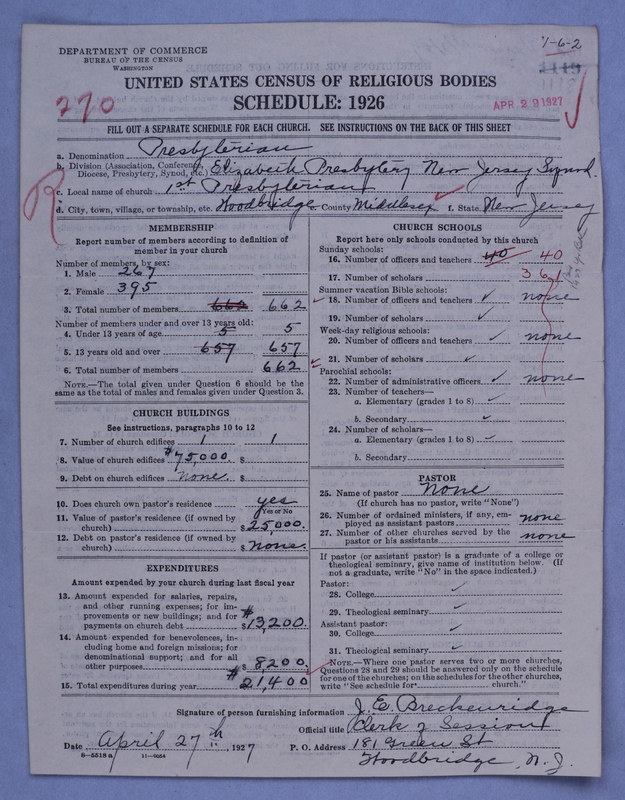 1-6-2
DEPARTMENT OF COMMERCE
BUREAU OF THE CENSUS
WASHINGTON
1119
UNITED STATES CENSUS OF RELIGIOUS BODIES
SCHEDULE: 1926
270
APR 29 1927
FILL OUT A SEPARATE SCHEDULE FOR EACH CHURCH. SEE INSTRUCTIONS ON THE BACK OF THIS SHEET
a. Denomination Presbyterian
b. Division (Association, Conference, Diocese, Presbytery, Synod, etc.) Elizabeth Presbytery New Jersey Synod.
c. Local name of church 1st Presbyterian
d. City, town, village, or township, etc. Woodbridge e. County Middlesex f. State New Jersey
MEMBERSHIP
Report number of members according to definition of
member in your church
Number of members, by sex:
1. Male 267
2. Female 395
3. Total number of members 662 662
Number of members under and over 13 years old:
4. Under 13 years of age 5 5
5. 13 years old and over 657 657
6. Total number of members 662
NOTE.—The total given under Question 6 should be the
same as the total of males and females given under Question 3.
CHURCH BUILDINGS
See instructions, paragraphs 10 to 12
7. Number of church edifices 1 1
8. Value of church edifices #75,000. $
9. Debt on church edifices none. $
10. Does church own pastor's residence yes
Yes or No
11. Value of pastor's residence (if owned by
church) $25,000.
12. Debt on pastor's residence (if owned by
church) $none.
EXPENDITURES
Amount expended by your church during last fiscal year
13. Amount expended for salaries, repairs,
and other running expenses; for im-
provements or new buildings; and for
payments on church debt #$13,200.
14. Amount expended for benevolences, in-
cluding home and foreign missions; for
denominational support; and for all
other purposes $8200.
15. Total expenditures during year #$21,400
CHURCH SCHOOLS
Report here only schools conducted by this church
Sunday schools:
16. Number of officers and teachers 40 40
17. Number of scholars 361
Summer vacation Bible schools:
18. Number of officers and teachers none
19. Number of scholars
Week-day religious schools:
20. Number of officers and teachers none
21. Number of scholars
Parochial schools:
22. Number of administrative officers none
23. Number of teachers—
a. Elementary (grades 1 to 8)
b. Secondary
24. Number of scholars—
a. Elementary (grades 1 to 8)
b. Secondary
PASTOR
25. Name of pastor None
(If church has no pastor, write "None")
26. Number of ordained ministers, if any, em-
ployed as assistant pastors none
27. Number of other churches served by the
pastor or his assistants none
If pastor (or assistant pastor) is a graduate of a college or
theological seminary, give name of institution below. (If
not a graduate, write "No" in the space indicated.)
Pastor:
28. College
29. Theological seminary
Assistant pastor:
30. College
31. Theological seminary
NOTE.—Where one pastor serves two or more churches,
Questions 28 and 29 should be answered only on the schedule
for one of the churches; on the schedules for the other churches,
write "See schedule for church."
Signature of person furnishing information J. E. Breckenridge
Official title Clerk of Session
Date April 27th, 1927 P. O. Address 181 Green St
8—5318 a 11—9064 Woodbridge, N. J.